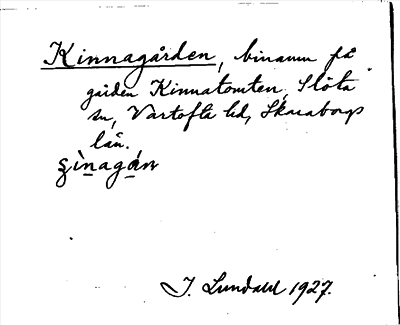 Kinnagården, binamn på
gården Kinnatomten, Slöta
sn, Vartofta hd, Skaraborgs
län.
J. Lundahl 1927.